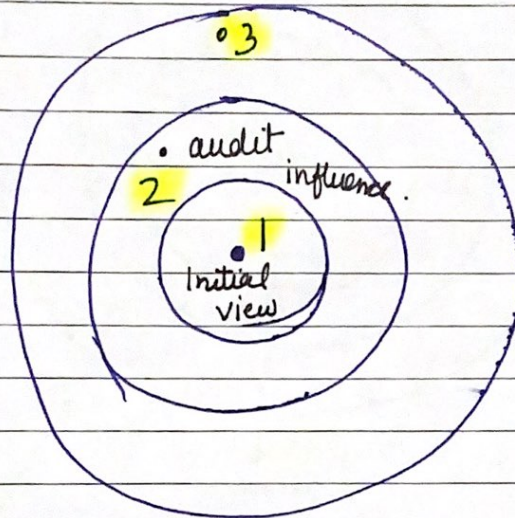 3
audit
influence.
2
1
Initial
view